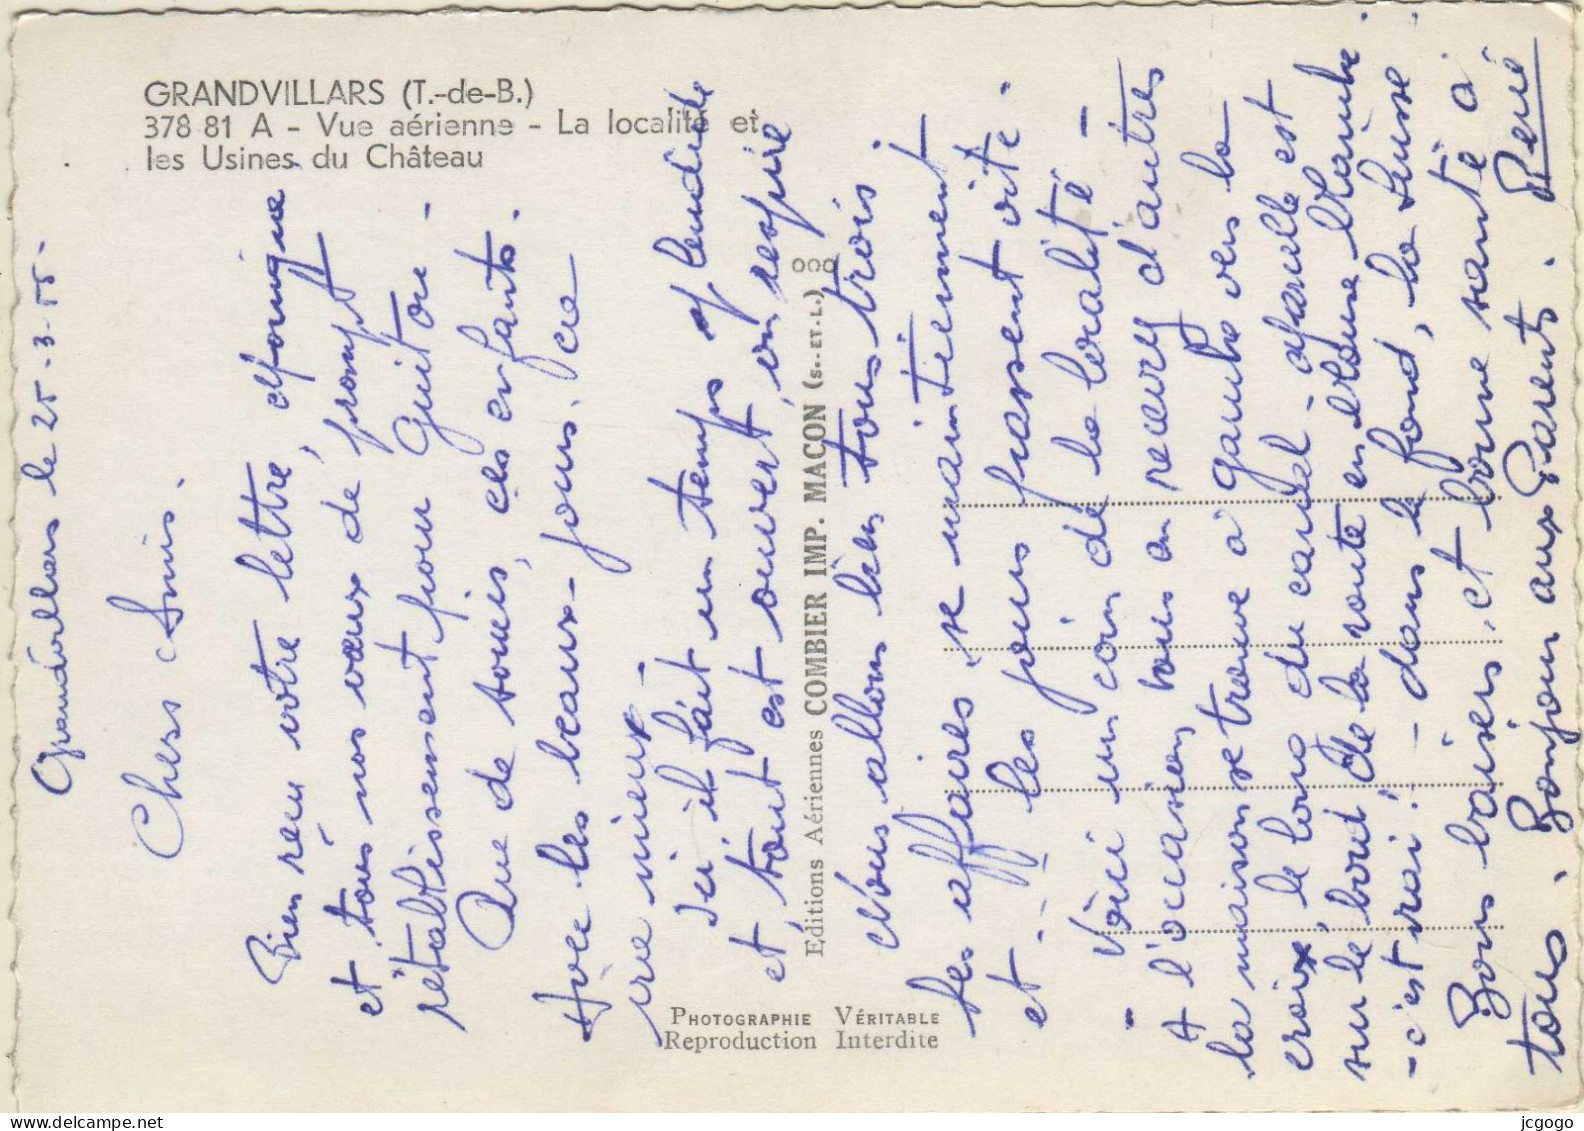 GRANDVILLARS (T.-de-B.)
378 81 A - Vue aérienne - La localité et
les Usines du Château
Grandvillars le 25-3-55-
Chers Amis.
Bien reçu votre lettre,
et tous nos vœux de prompt
rétablissement pour Guitou -
Que de soucis, ces enfants.
Avec les beaux-jours. ça
ira mieux -
Ici il fait un temps splendide
et, tout est ouvert, on respire
Nous allons bien tous trois
les affaires se maintiennent
et - les jours passent vite.
- Voici un coin de la localité -
A l'occasion vous en recevrez d'autres
la maison se trouve à gauche vers la
croix, le long du canal - laquelle est
sur le bord de la route en blouse blanche.
- c'est vrai! - dans le fond, la Suisse
Bons baisers, et bonne santé à
tous. Bonjour aux Parents. René
Editions Aériennes COMBIER IMP. MACON (S.-ET-L.)
PHOTOGRAPHIE VÉRITABLE
Reproduction Interdite
delcampe.net
jcgogo